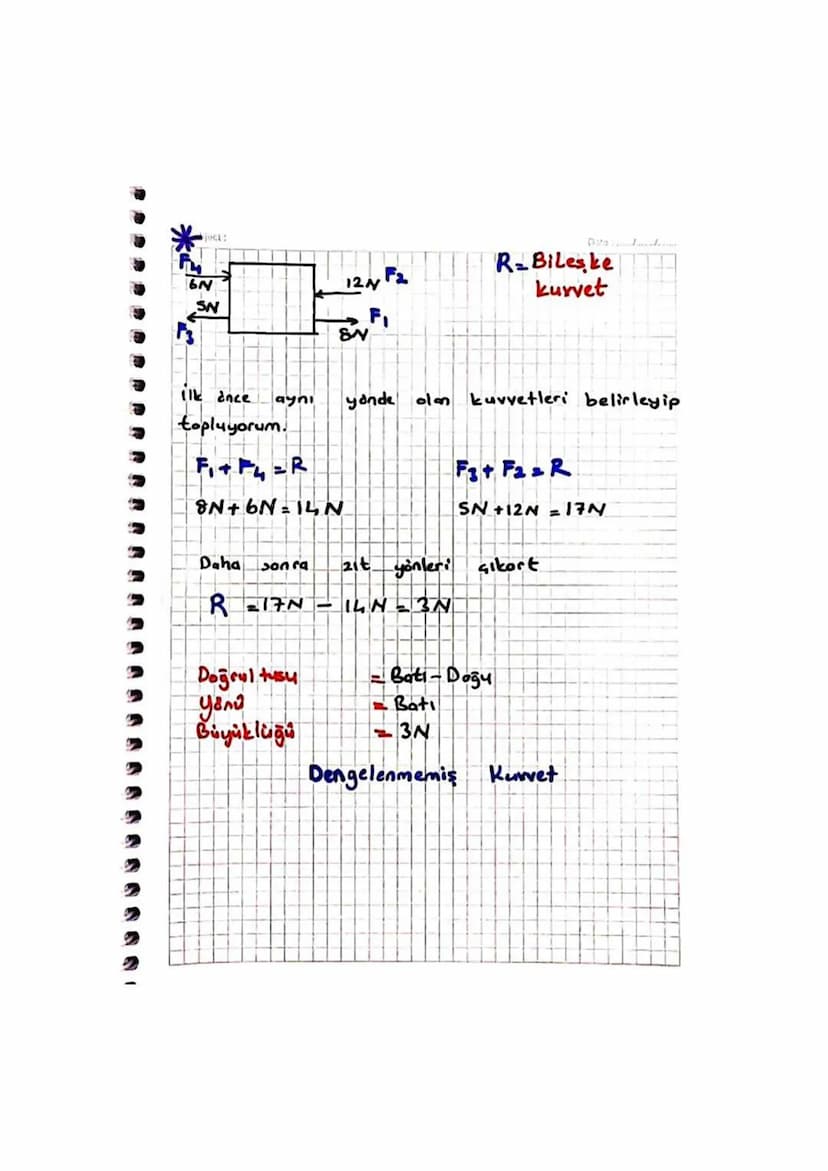 Date
F4
6N
5N
F3
12N F2
F1
8N
R = Bileşke
kuvvet
ilk önce aynı yönde olan kuvvetleri belirleyip
topluyorum.
F1 + F4 = R
8N + 6N = 14N
F3 + F2 = R
5N + 12N = 17N
Daha sonra zıt yönleri çıkart
R = 17N - 14N = 3N
Doğrultusu = Batı - Doğu
Yönü = Batı
Büyüklüğü = 3N
Dengelenmemiş Kuvvet